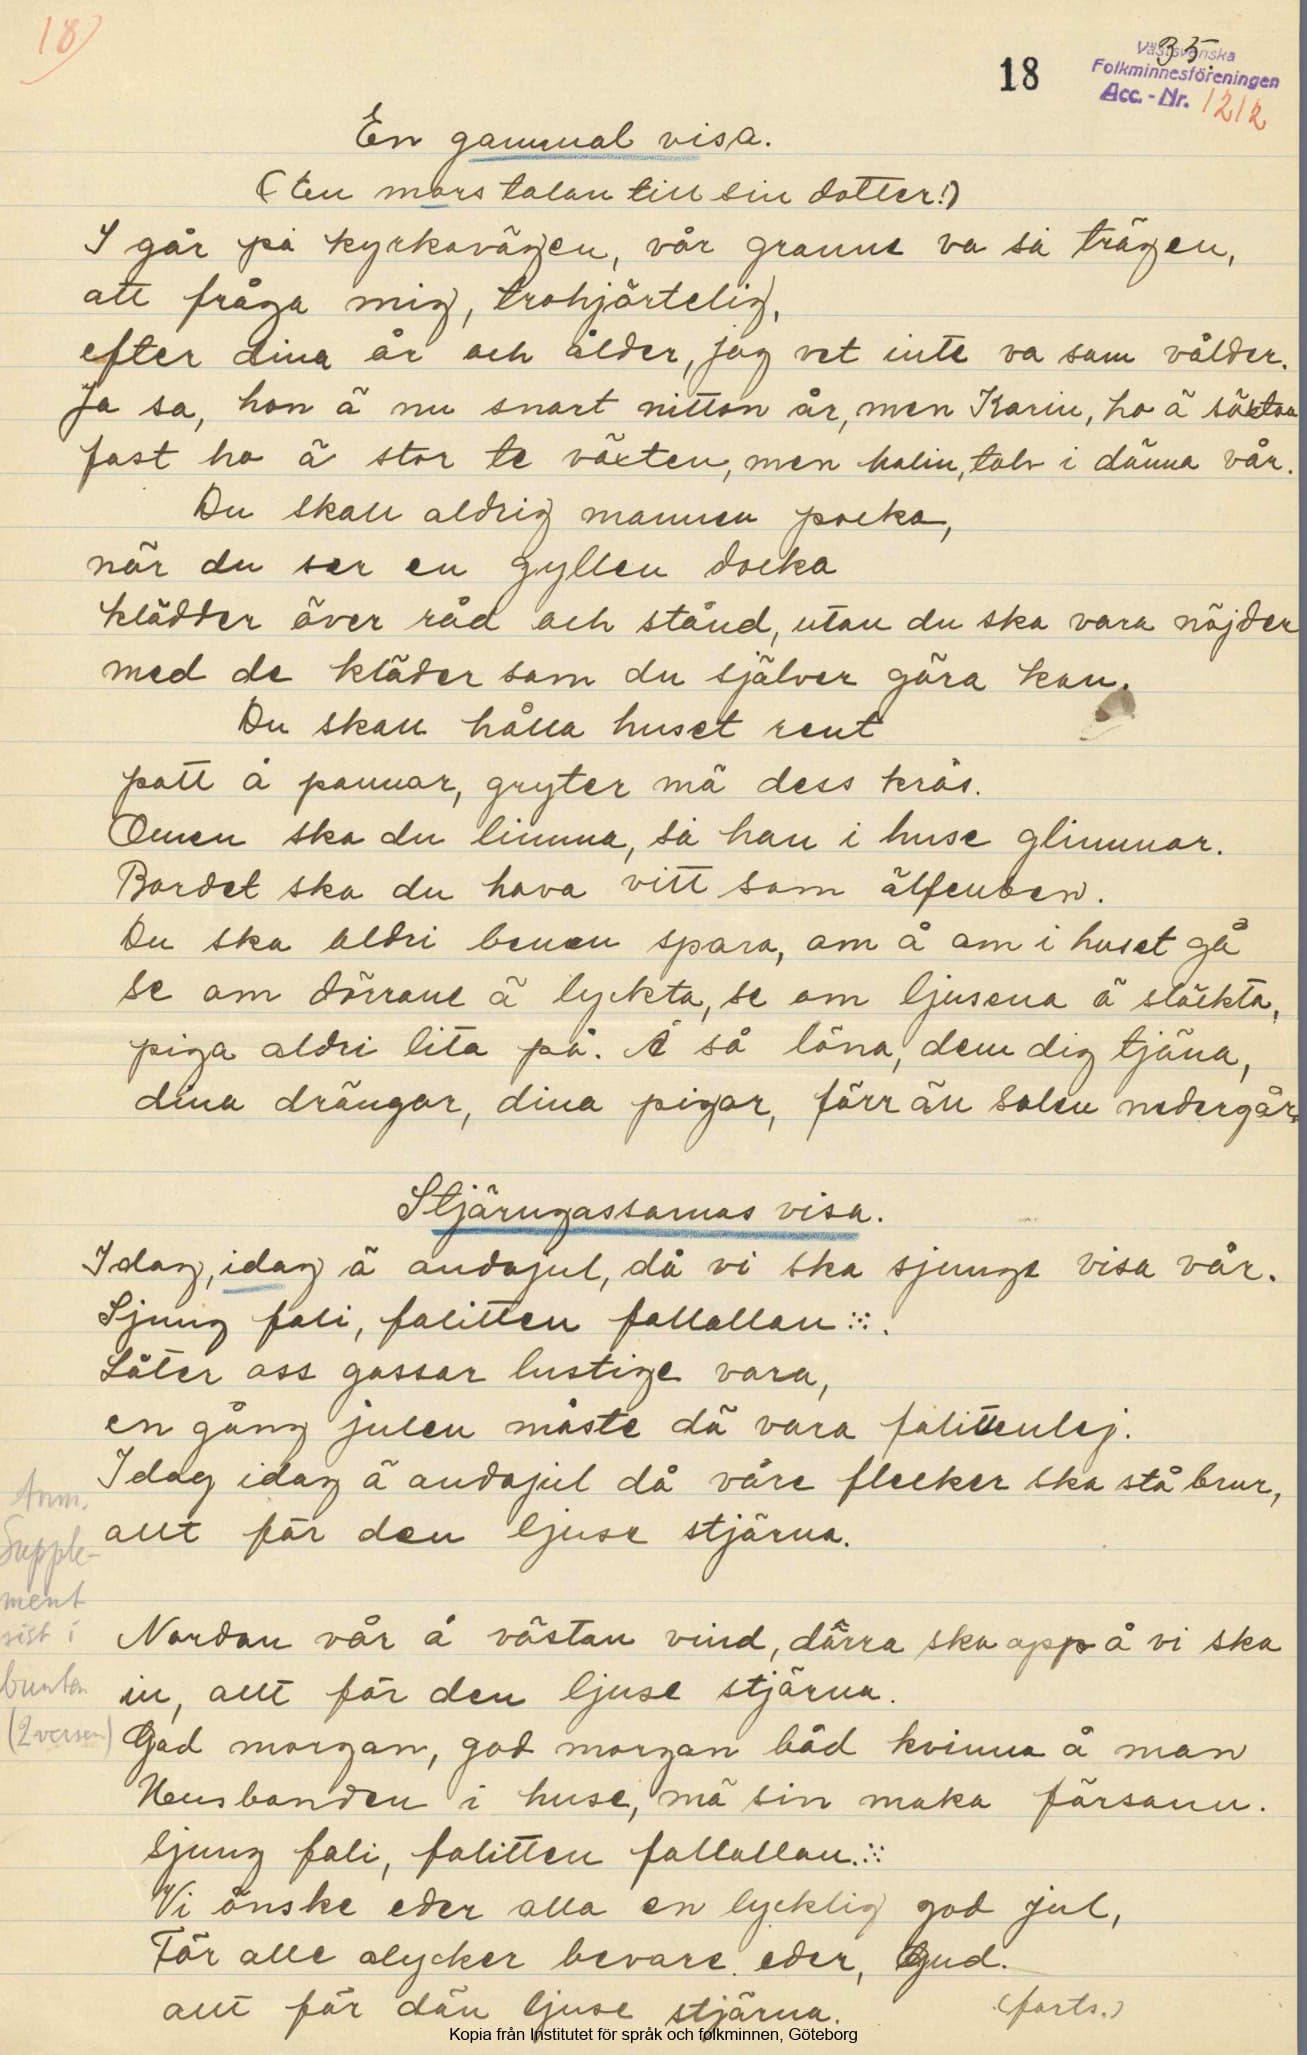 18)
18
35.
Västsvenska
Folkminnesföreningen
Acc.-Nr. 1212
En gammal visa.
(En mors talan till sin dotter!)
I går på kyrkavägen, vår granne va så trägen,
att fråga mig, trohjärtelig,
efter dina år och ålder, jag vet inte va som vålder.
Ja sa, hon ä nu snart nitton år, men Karin, ho ä säxton
fast ho ä stor te växten, men Malin, tolv i dänna vår.
Du skall aldrig mannen pocka,
när du ser en gyllen docka
klädder över råd och stånd, utan du ska vara nöjder
med de kläder som du själver göra kan.
Du skall hålla huset rent
pott å pannar, gryter mä dess krås.
Omen ska du limma, så han i huse glimmar.
Bordet ska du hava vitt som älfenben.
Du ska aldri benen spara, om å om i huset gå
se om dörrane ä lyckta, se om ljusena ä släckta,
piga aldri lita på. Å så löna, dem dig tjäna,
dina drängar, dina pigor, förr än solen nedergår.
Stjärngossarnas visa.
Idag, idag ä andajul, då vi ska sjunge visa vår.
Sjung fali, falitten fallallan ::.
Låter oss gossar lustige vara,
en gång julen måste dä vara falittenlej.
Idag idag ä andajul då våre flecker ska stå brur,
allt för den ljuse stjärna.
Anm.
Supple-
ment
sist i
bunten
(2 versen)
Nordan vår å västan vind, därra ska opp å vi ska
in, allt för den ljuse stjärna.
God morgon, god morgon båd kvinna å man
Husbonden i huse, mä sin maka försann.
Sjung fali, falitten fallallan. ::
Vi önske eder alla en lycklig god jul,
För alle olycker bevare eder, Gud.
allt för dän ljuse stjärna.
(forts.)
Kopia från Institutet för språk och folkminnen, Göteborg